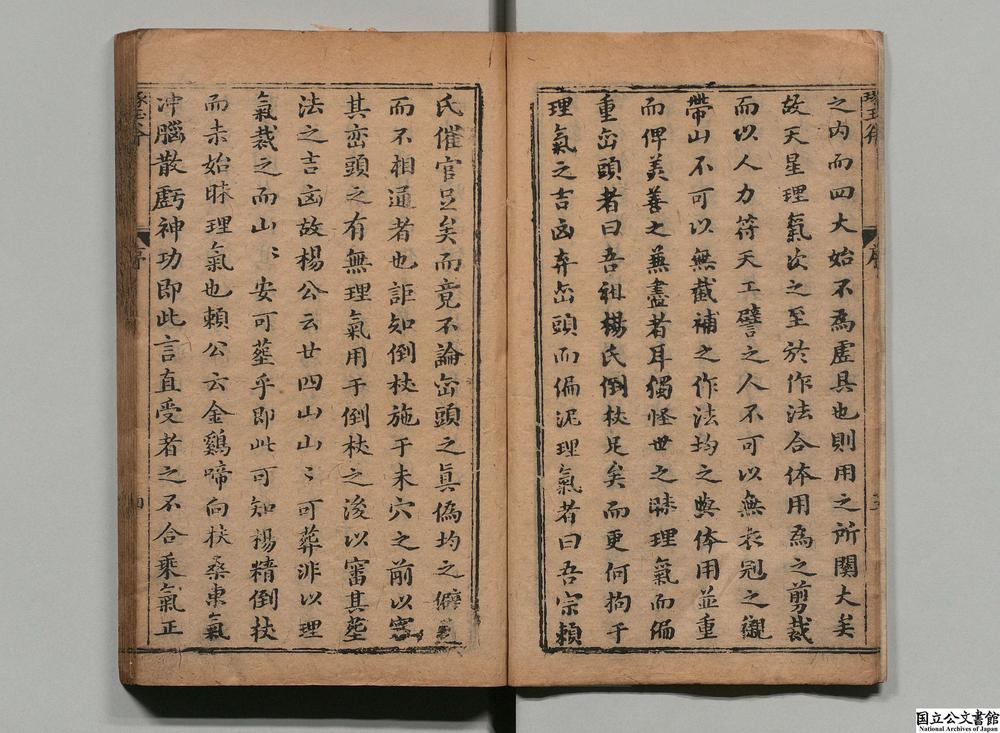 之内而四大始不為虗具也則用之所關大矣
故天星理氣次之至於作法合体用為之剪裁
而以人力符天工譬之人不可以無衣冠之襯
帶山不可以無截補之作法均之與体用並重
而俾美善之兼盡者耳獨怪世之昧理氣而偏
重巒頭者曰吾祖楊氏倒杖足矣而更何拘于
理氣之吉凶弃巒頭而偏泥理氣者曰吾宗頼
序
三
氏催官足矣而竟不論巒頭之真偽均之僻
而不相通者也詎知倒杖施于未穴之前以審
其巒頭之有無理氣用于倒杖之後以審其塟
法之吉凶故楊公云廿四山山〻可葬非以理
氣裁之而山〻安可塟乎即此可知楊精倒杖
而未始昧理氣也頼公云金鷄啼向扶桑東氣
冲腦散虧神功即此言直受者之不合乘氣正
序
四
国立公文書館
National Archives of Japan